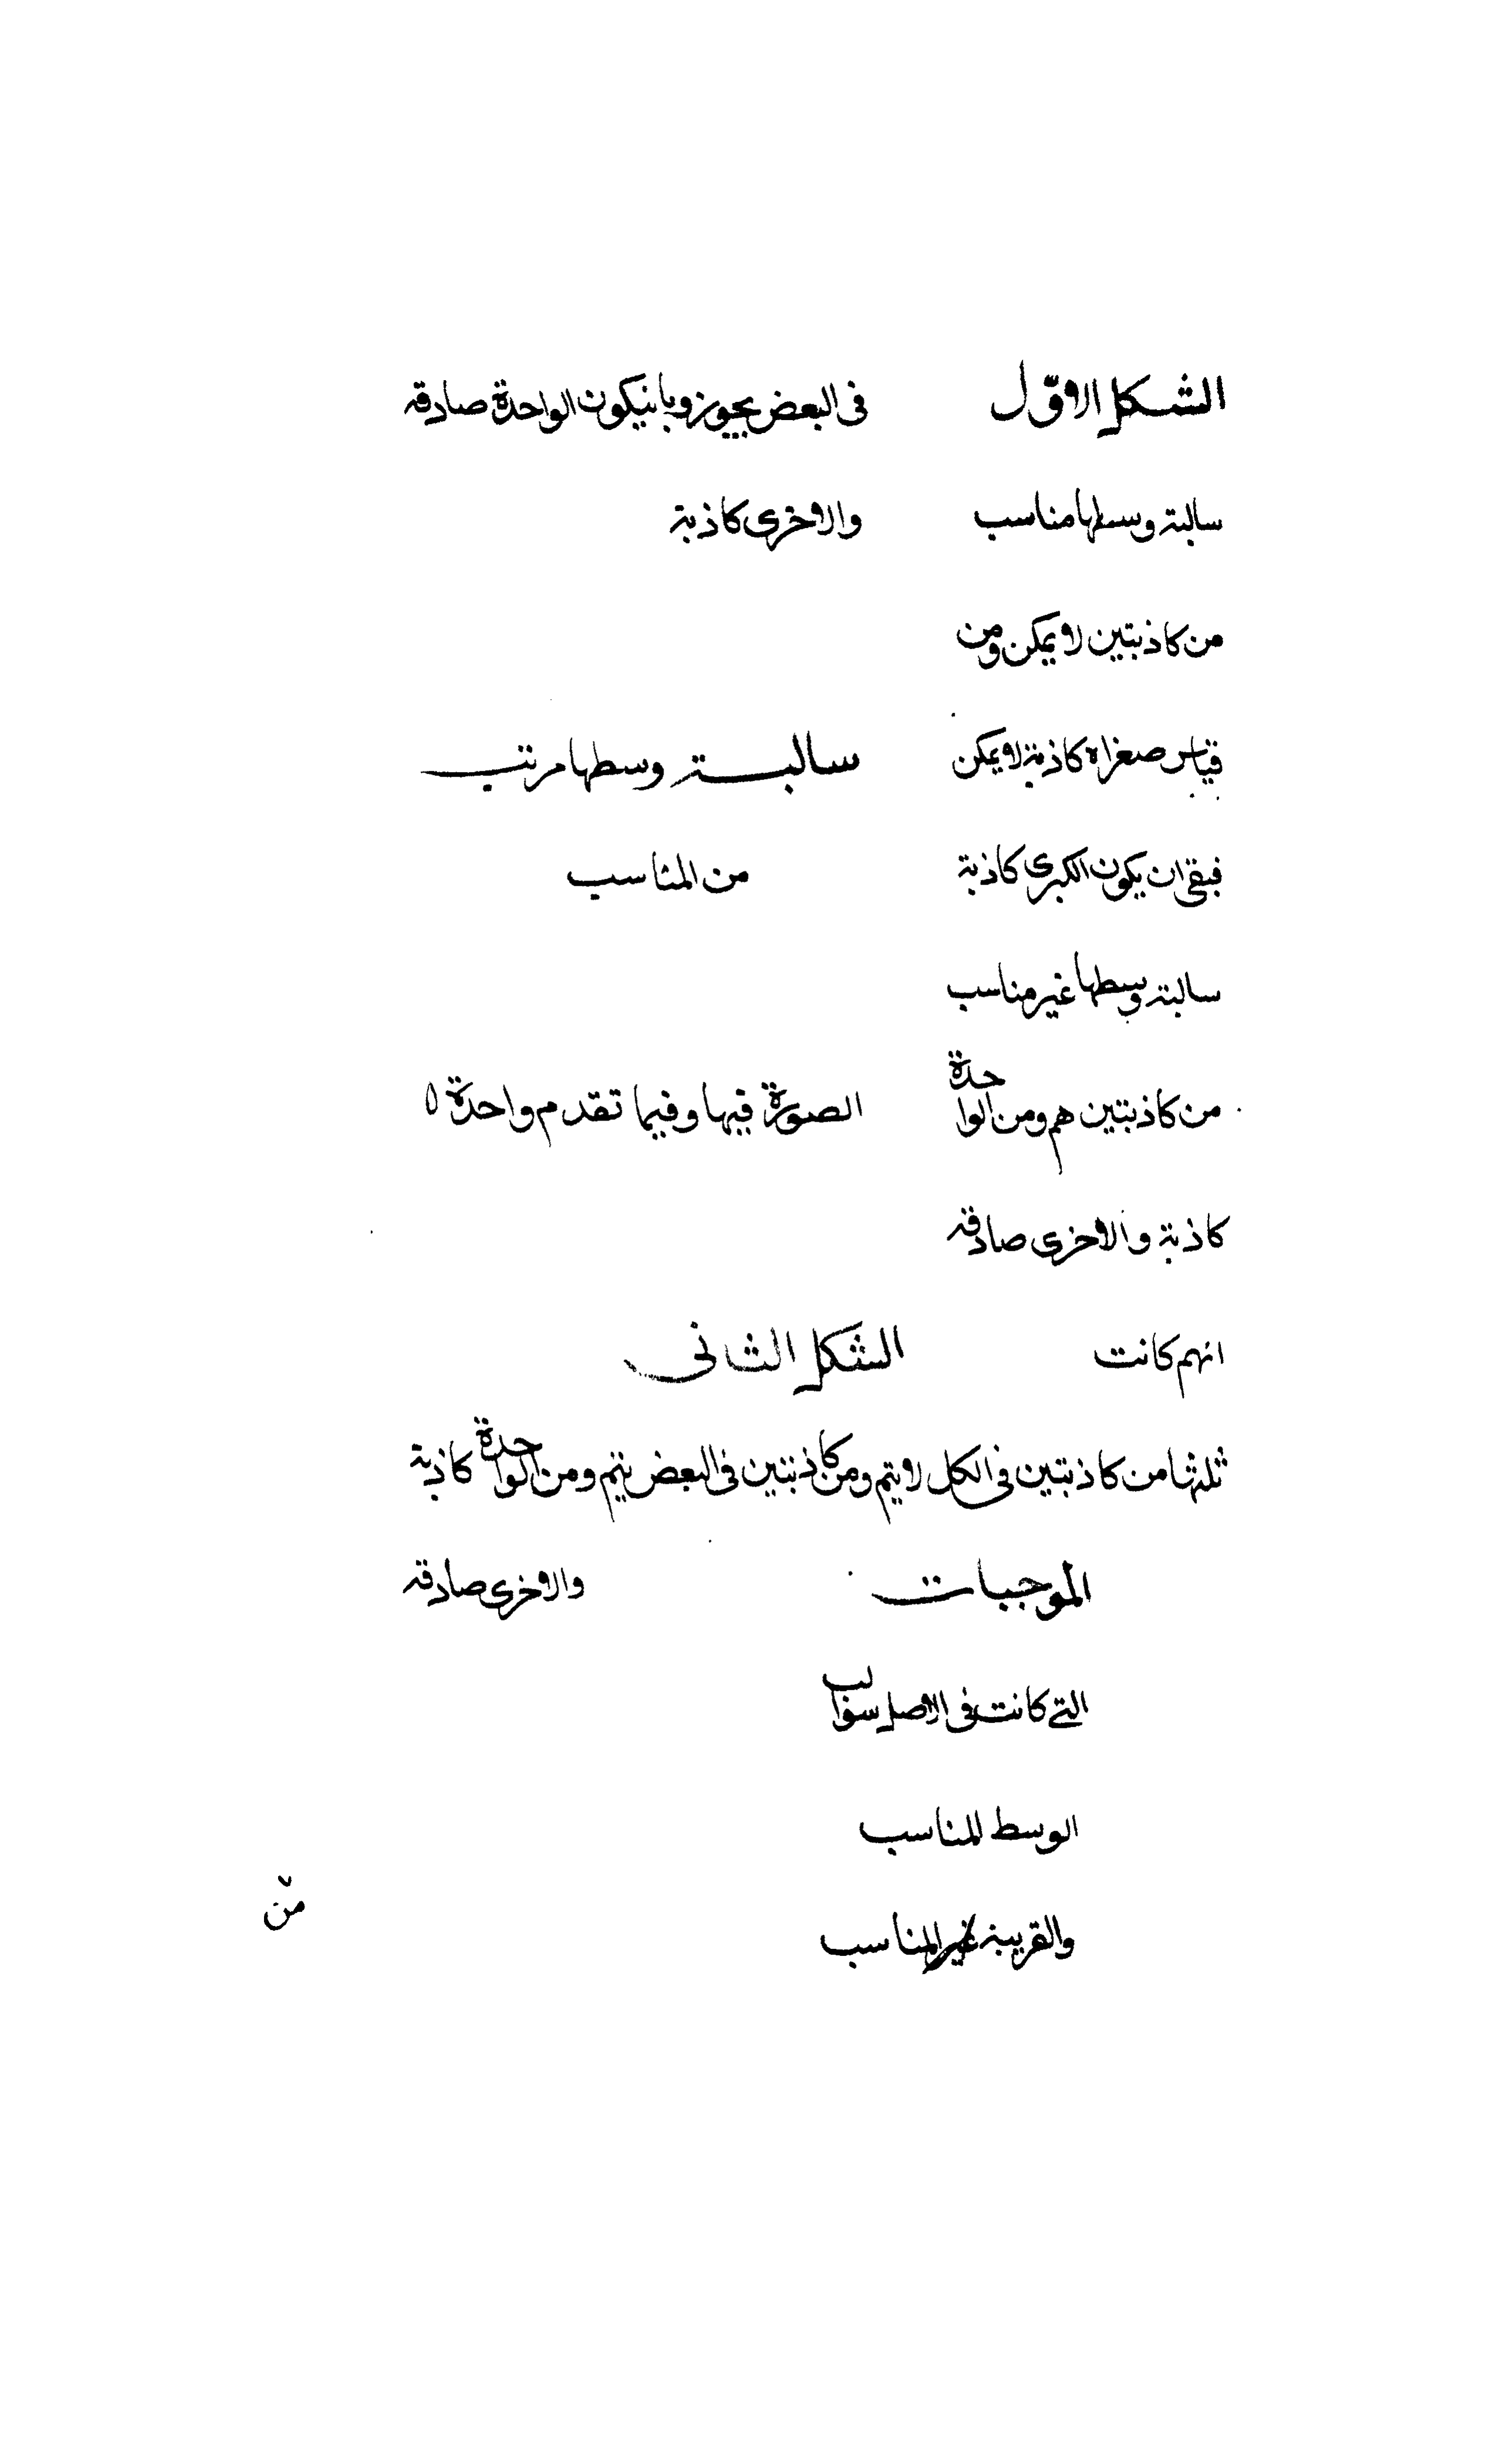 الشكل الاوّل
في البعض يجوز وبا نيكون الواحدة صادقة
سالبة وسطها مناسب
والاخرى كاذبة
من كاذبتين لا يمكن ومن
قياس صغراه كاذبة لا يمكن
سالبة وسطها مرتب
فبقى ان يكون الكبرى كاذبة
من المناسب
سالبة وسطها غير مناسب
من كاذبتين هم ومن الواحدة
الصورة فيها وفيما تقدم واحدة ٥
كاذبة والاخرى صادقة
انهم كانت
الشكل الثانى
ثلثها من كاذبتين في الكل لا يتم ومن كاذبتين في البعض يتم ومن الواحدة كاذبة
الموجبات
والاخرى صادقة
التي كانت في الاصل سوالب
الوسط المناسب
والقريبة غير المناسب
من